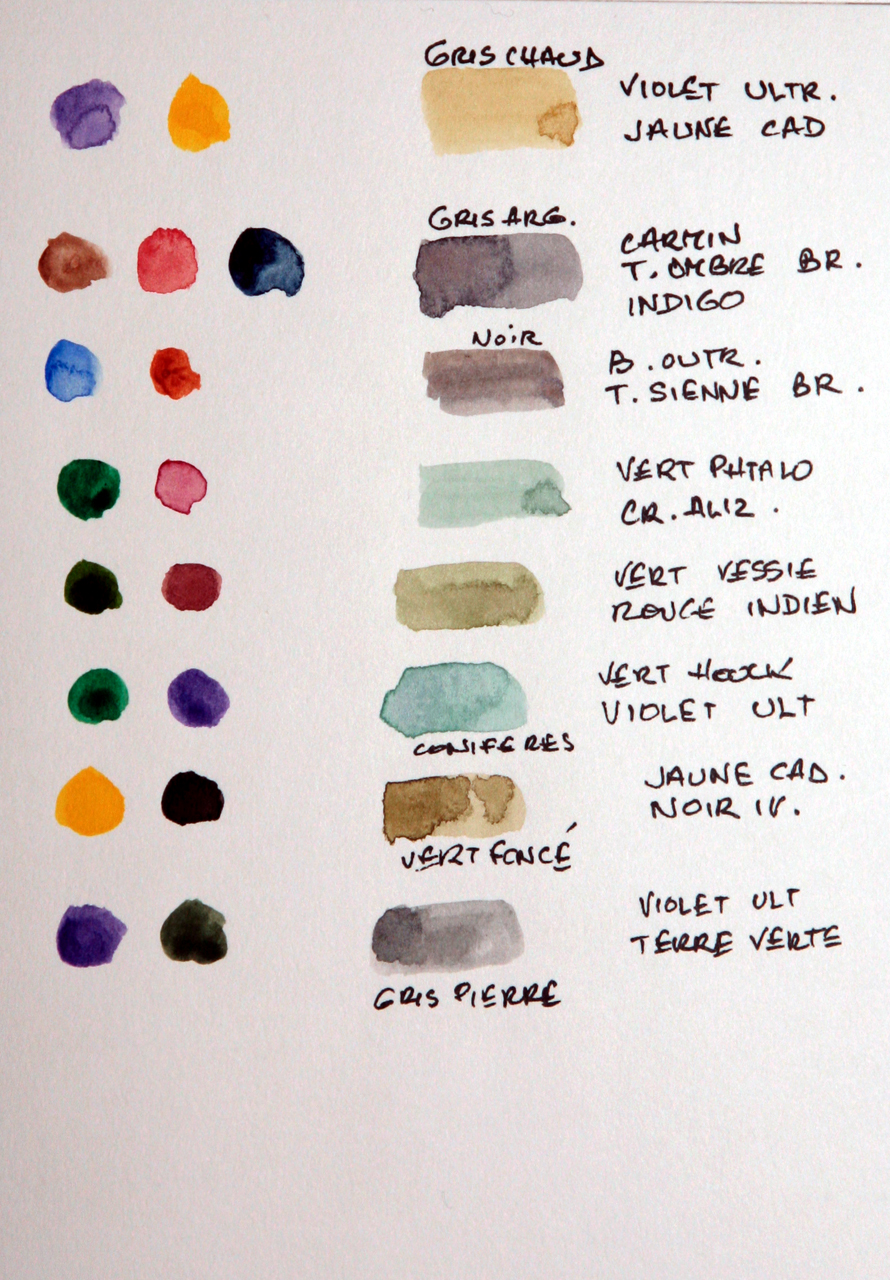 GRIS CHAUD
VIOLET ULTR.
JAUNE CAD
GRIS ARG.
CARMIN
T. OMBRE BR.
INDIGO
NOIR
B. OUTR.
T. SIENNE BR.
VERT PHTALO
CR. ALIZ.
VERT VESSIE
ROUGE INDIEN
VERT HOOCK
VIOLET ULT
CONIFERES
JAUNE CAD.
NOIR IV.
VERT FONCÉ
VIOLET ULT
TERRE VERTE
GRIS PIERRE